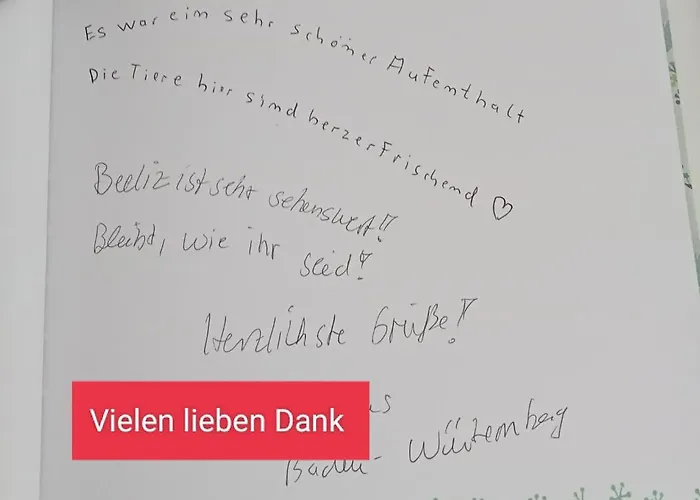 Es war ein sehr schöner Aufenthalt
Die Tiere hier sind herzerfrischend ♡
Beeliz ist sehr sehenswert!!
Bleibt, wie ihr seid!
Herzlichste Grüße!
Vielen lieben Dank
Baden-Württemberg